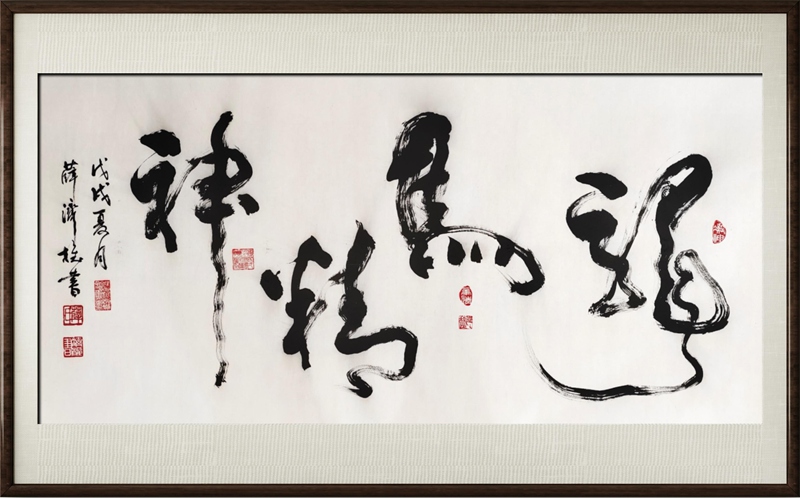 龍馬精神
戊戌夏月
薛澤梭書